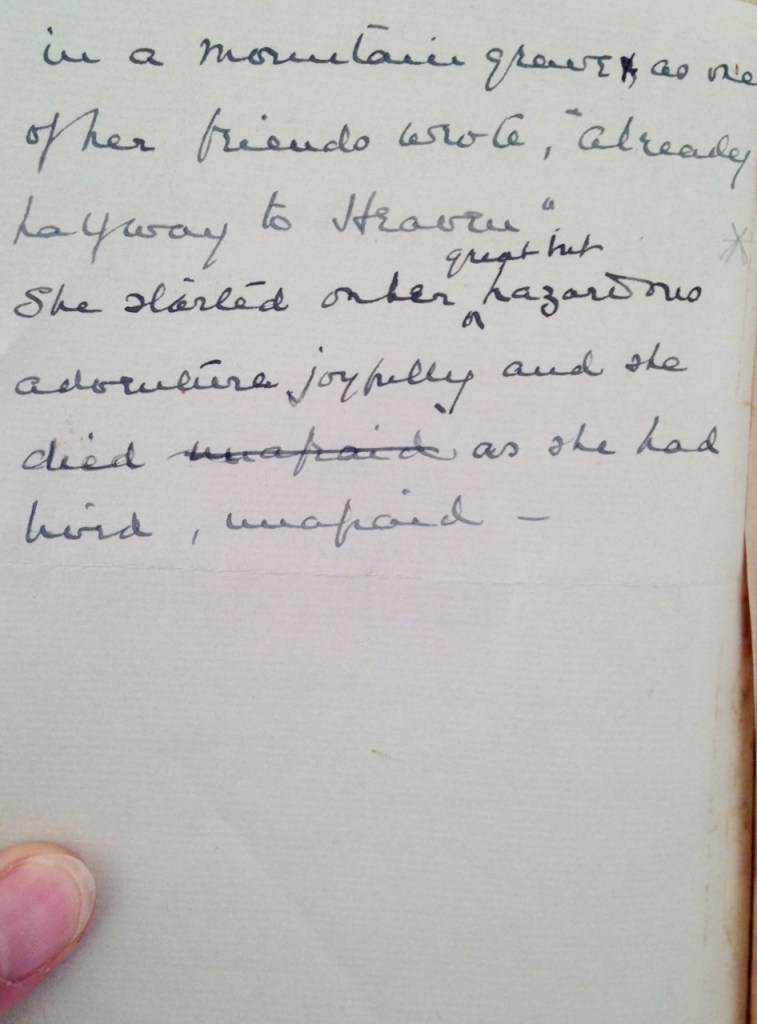 in a mountain grave, as one
of her friends wrote, "already
halfway to Heaven"
great but
She started on her hazardous
adventure joyfully and she
died unafraid as she had
lived, unafraid –